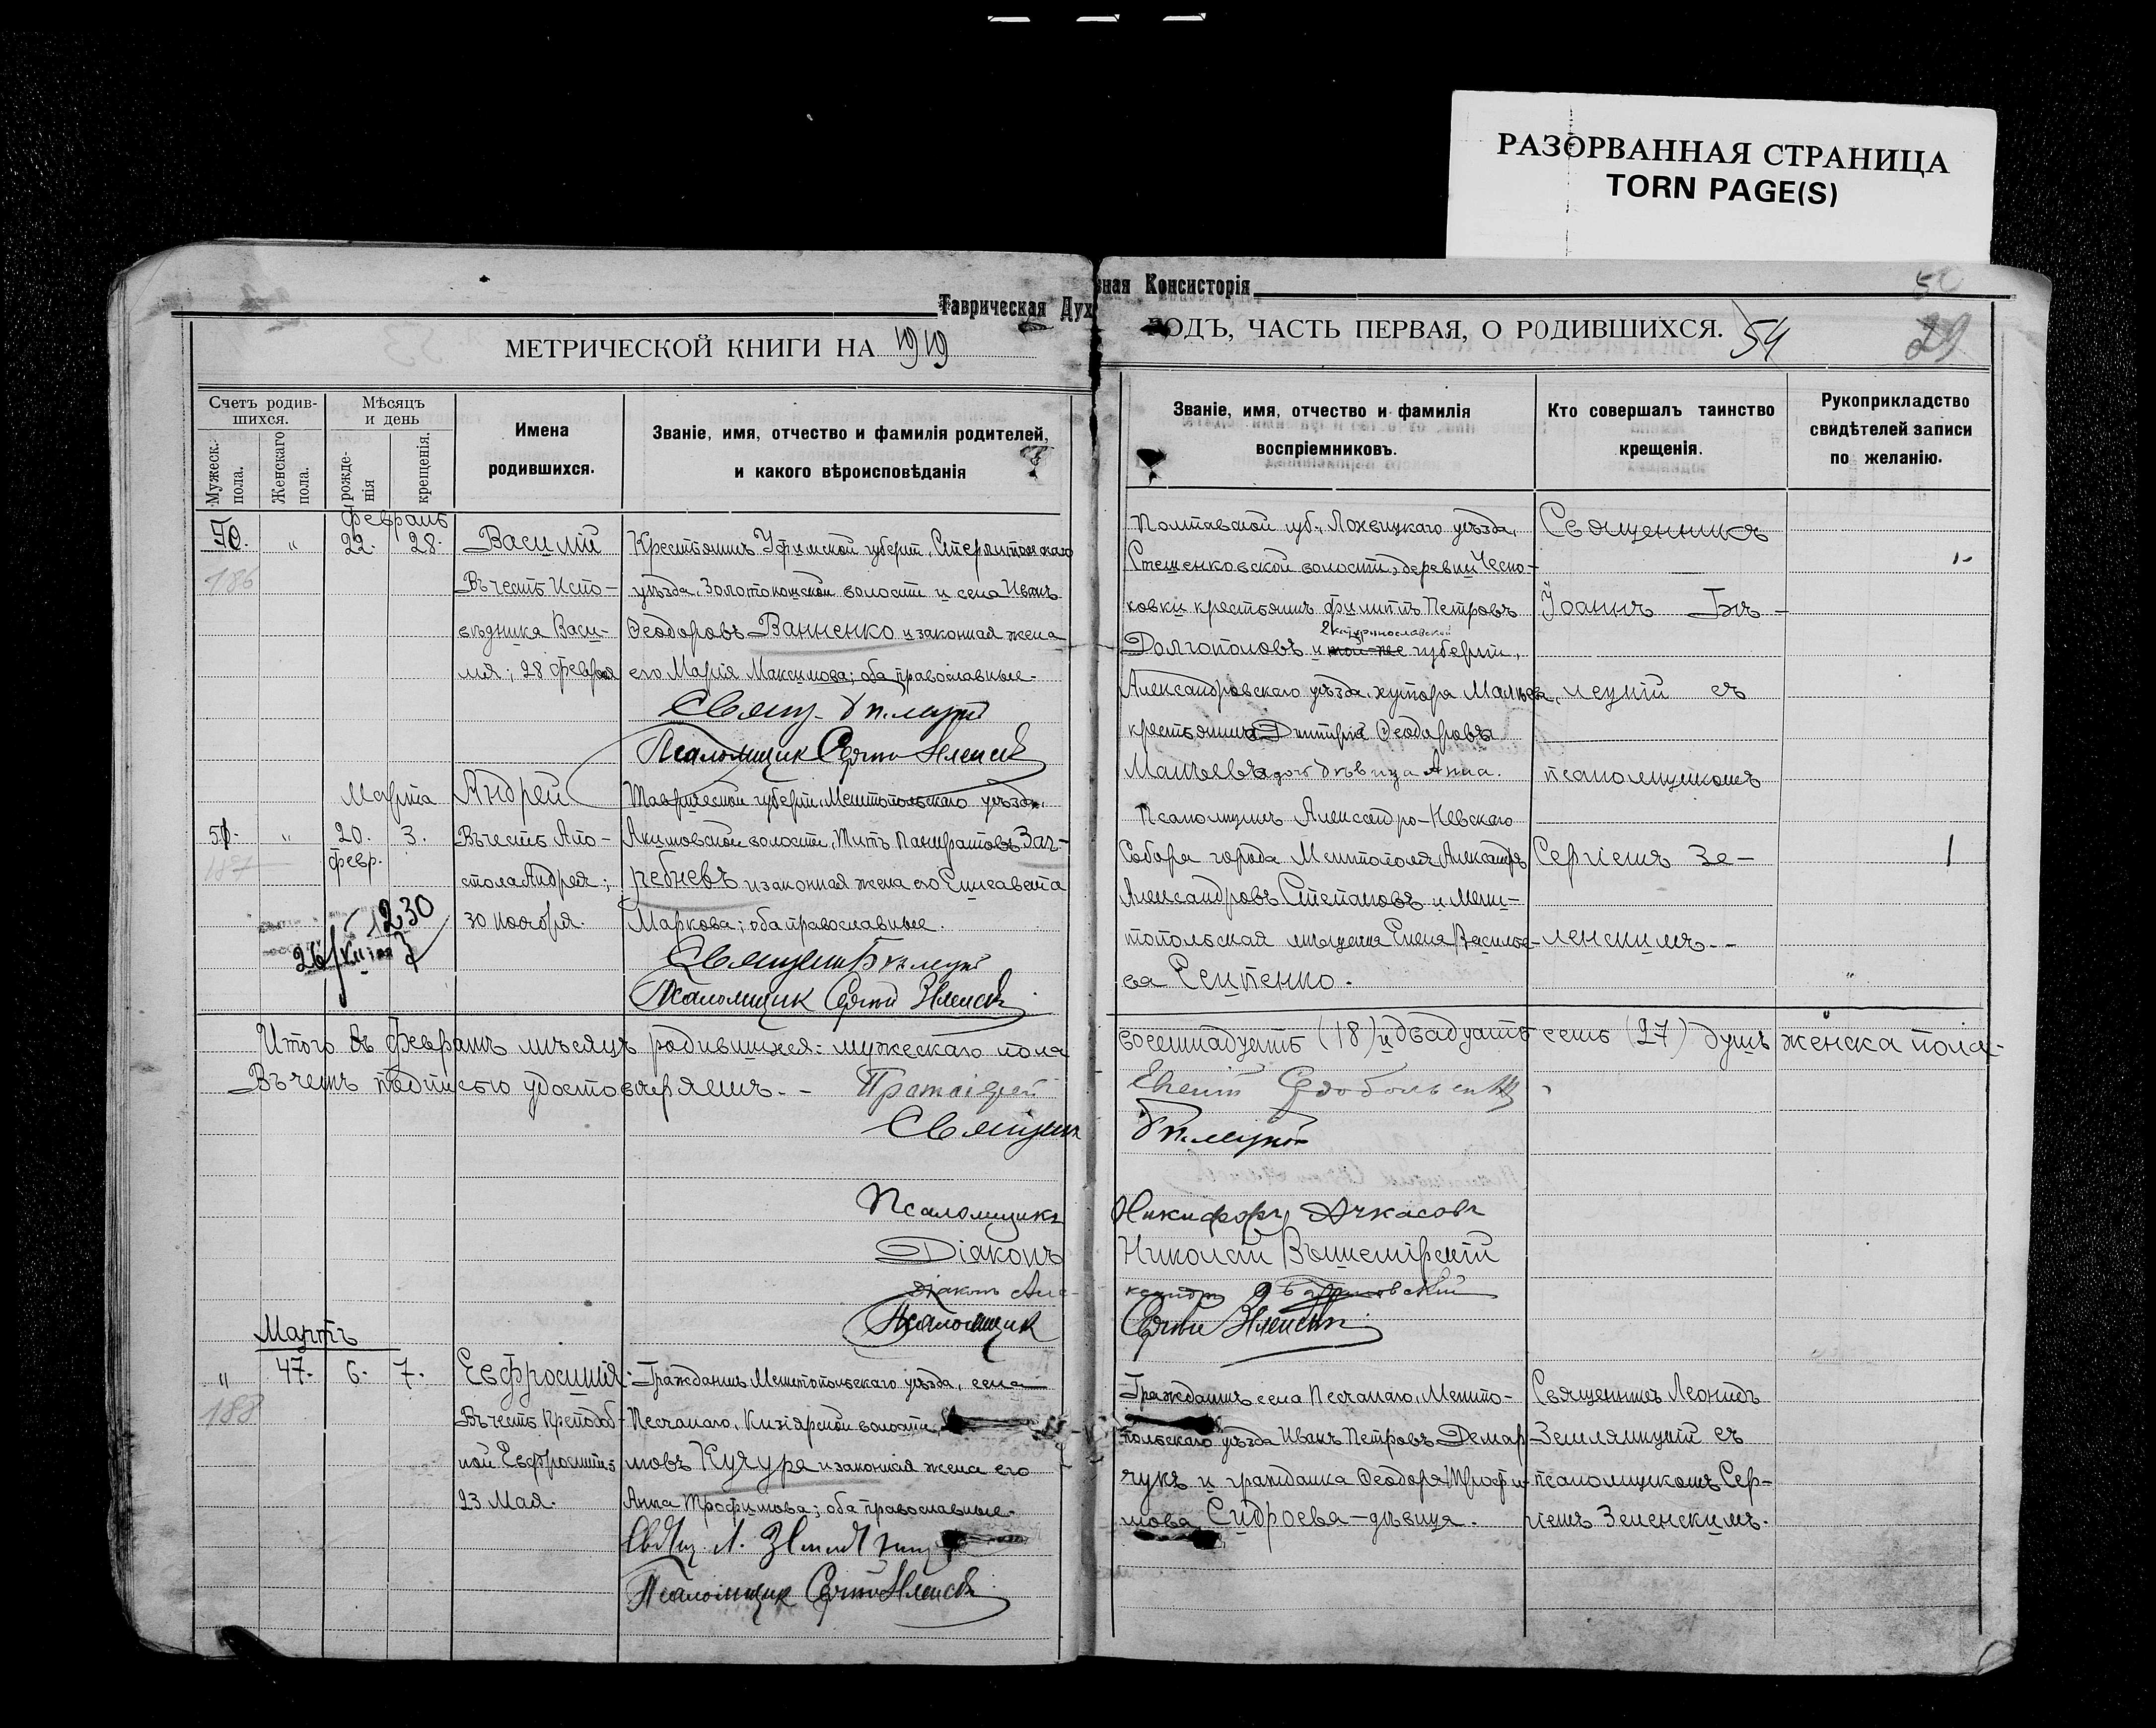 РАЗОРВАННАЯ СТРАНИЦА
TORN PAGE(S)
Таврическая Духовная Консисторія
50
МЕТРИЧЕСКОЙ КНИГИ НА 1919 ГОДЪ, ЧАСТЬ ПЕРВАЯ, О РОДИВШИХСЯ. 54
29
Счетъ родив-
шихся.
Мужеск.
пола.
Женскаго
пола.
Мѣсяцъ
и день
рожде-
нія
крещенія.
Имена
родившихся.
Званіе, имя, отчество и фамилія родителей,
и какого вѣроисповѣданія
Званіе, имя, отчество и фамилія
воспріемниковъ.
Кто совершалъ таинство
крещенія.
Рукоприкладство
свидѣтелей записи
по желанію.
Февраль
50. " 22. 28.
186
Василій
Въ честь Испо-
вѣдника Васи-
лія; 28 февраля
Крестьянинъ Уфимской губерніи, Стерлитамакскаго
уѣзда, Золотоношской волости и села Иванъ
Ѳеодоровъ Ванненко и законная жена
его Марія Максимова; оба православные.
Псаломщик Сергій Зеленскій
Полтавской губ., Лохвицкаго уѣзда,
волости, деревни Чесно-
ковки крестьянинъ Филиппъ Петровъ
Екатеринославской
Долгополовъ и той-же губерніи,
Александровскаго уѣзда, хутора
крестьянина Димитрія Ѳеодорова
дочь дѣвица Анна.
Священникъ
Іоаннъ Бѣ-
лецкій съ
псаломщикомъ
Сергіемъ Зе-
ленскимъ.
Марта
51. " 20. 3.
февр.
187
1230
26
Андрей
Въ честь Апо-
стола Андрея;
30 ноября.
Таврической губерніи, Мелитопольскаго уѣзда,
Акимовской волости, Титъ Панкратовъ Заг-
ребневъ и законная жена его Елисавета
Маркова; оба православные.
Псаломщик Сергій Зеленскій
Псаломщикъ Александро-Невскаго
Собора города Мелитополя Александръ
Александровъ Степановъ и Мели-
топольская мѣщанка Елена Василье-
ва Есипенко.
Итого въ февралѣ мѣсяцѣ родившихся: мужескаго пола восемнадцать (18) и двадцать семь (27) душъ женска пола.
Въ чемъ подписью удостовѣряемъ.- Протоіерей
Священникъ
Псаломщикъ Никифоръ Ачкасовъ
Діаконъ Николай
Діаконъ Александръ
Псаломщик Сергій Зеленскій
Мартъ
" 47. 6. 7.
188
Евфросинія
Въ честь Преподоб-
ной Евфросиніи;
23 Мая.
Гражданинъ Мелитопольскаго уѣзда, села
Песчанаго, Кизіярской волости,
мовъ Кучура и законная жена его
Анна Трофимова; оба православные.
Псаломщик Сергій Зеленскій
Гражданинъ села Песчанаго, Мелито-
польскаго уѣзда Иванъ Петровъ Демар-
чукъ и гражданка Ѳеодора Трофи-
мова Сидроева - дѣвица.
Священникъ Леонидъ
Земляницкій съ
псаломщикомъ Сер-
гіемъ Зеленскимъ.